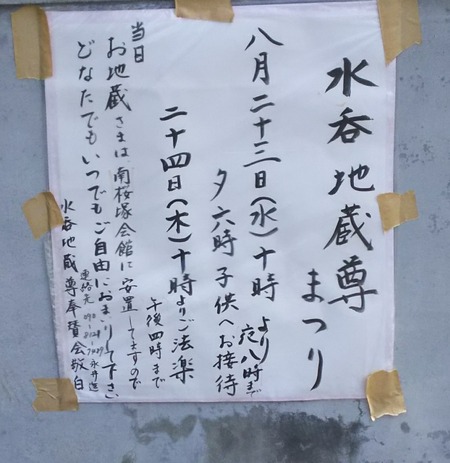 水呑地蔵尊
まつり
八月二十三日(水)十時より夜八時まで
夕六時子供へお接待
二十四日(木)十時よりご法楽
午後四時まで
当日
お地蔵さまは、南桜塚会館に安置してますので
どなたでもいつでもご自由におまいり下さい
水呑地蔵尊奉賛会敬白
連絡先